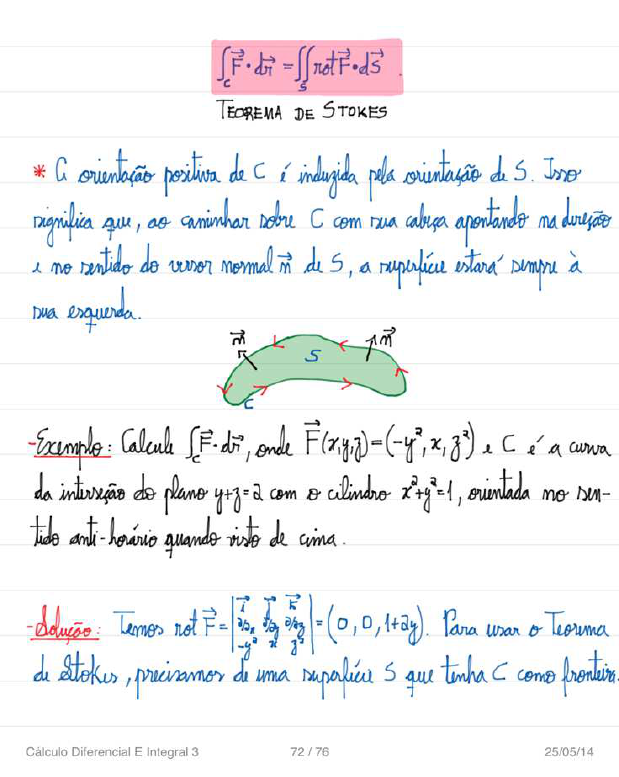 ∫_C F⃗ · dr⃗ = ∬_S rot F⃗ · dS⃗.
TEOREMA DE STOKES
* A orientação positiva de C é induzida pela orientação de S. Isso
significa que, ao caminhar sobre C com sua cabeça apontando na direção
e no sentido do versor normal n⃗ de S, a superfície estará sempre à
sua esquerda.
n⃗ n⃗
S
C
-Exemplo: Calcule ∫_C F⃗ · dr⃗, onde F⃗(x,y,z)=(-y², x, z²) e C é a curva
da interseção do plano y+z=2 com o cilindro x²+y²=1, orientada no sen-
tido anti-horário quando visto de cima.
-Solução: Temos rot F⃗ = |i⃗ j⃗ k⃗; ∂/∂x ∂/∂y ∂/∂z; -y² x z²| = (0, 0, 1+2y). Para usar o Teorema
de Stokes, precisamos de uma superfície S que tenha C como fronteira.
Cálculo Diferencial E Integral 3 72 / 76 25/05/14